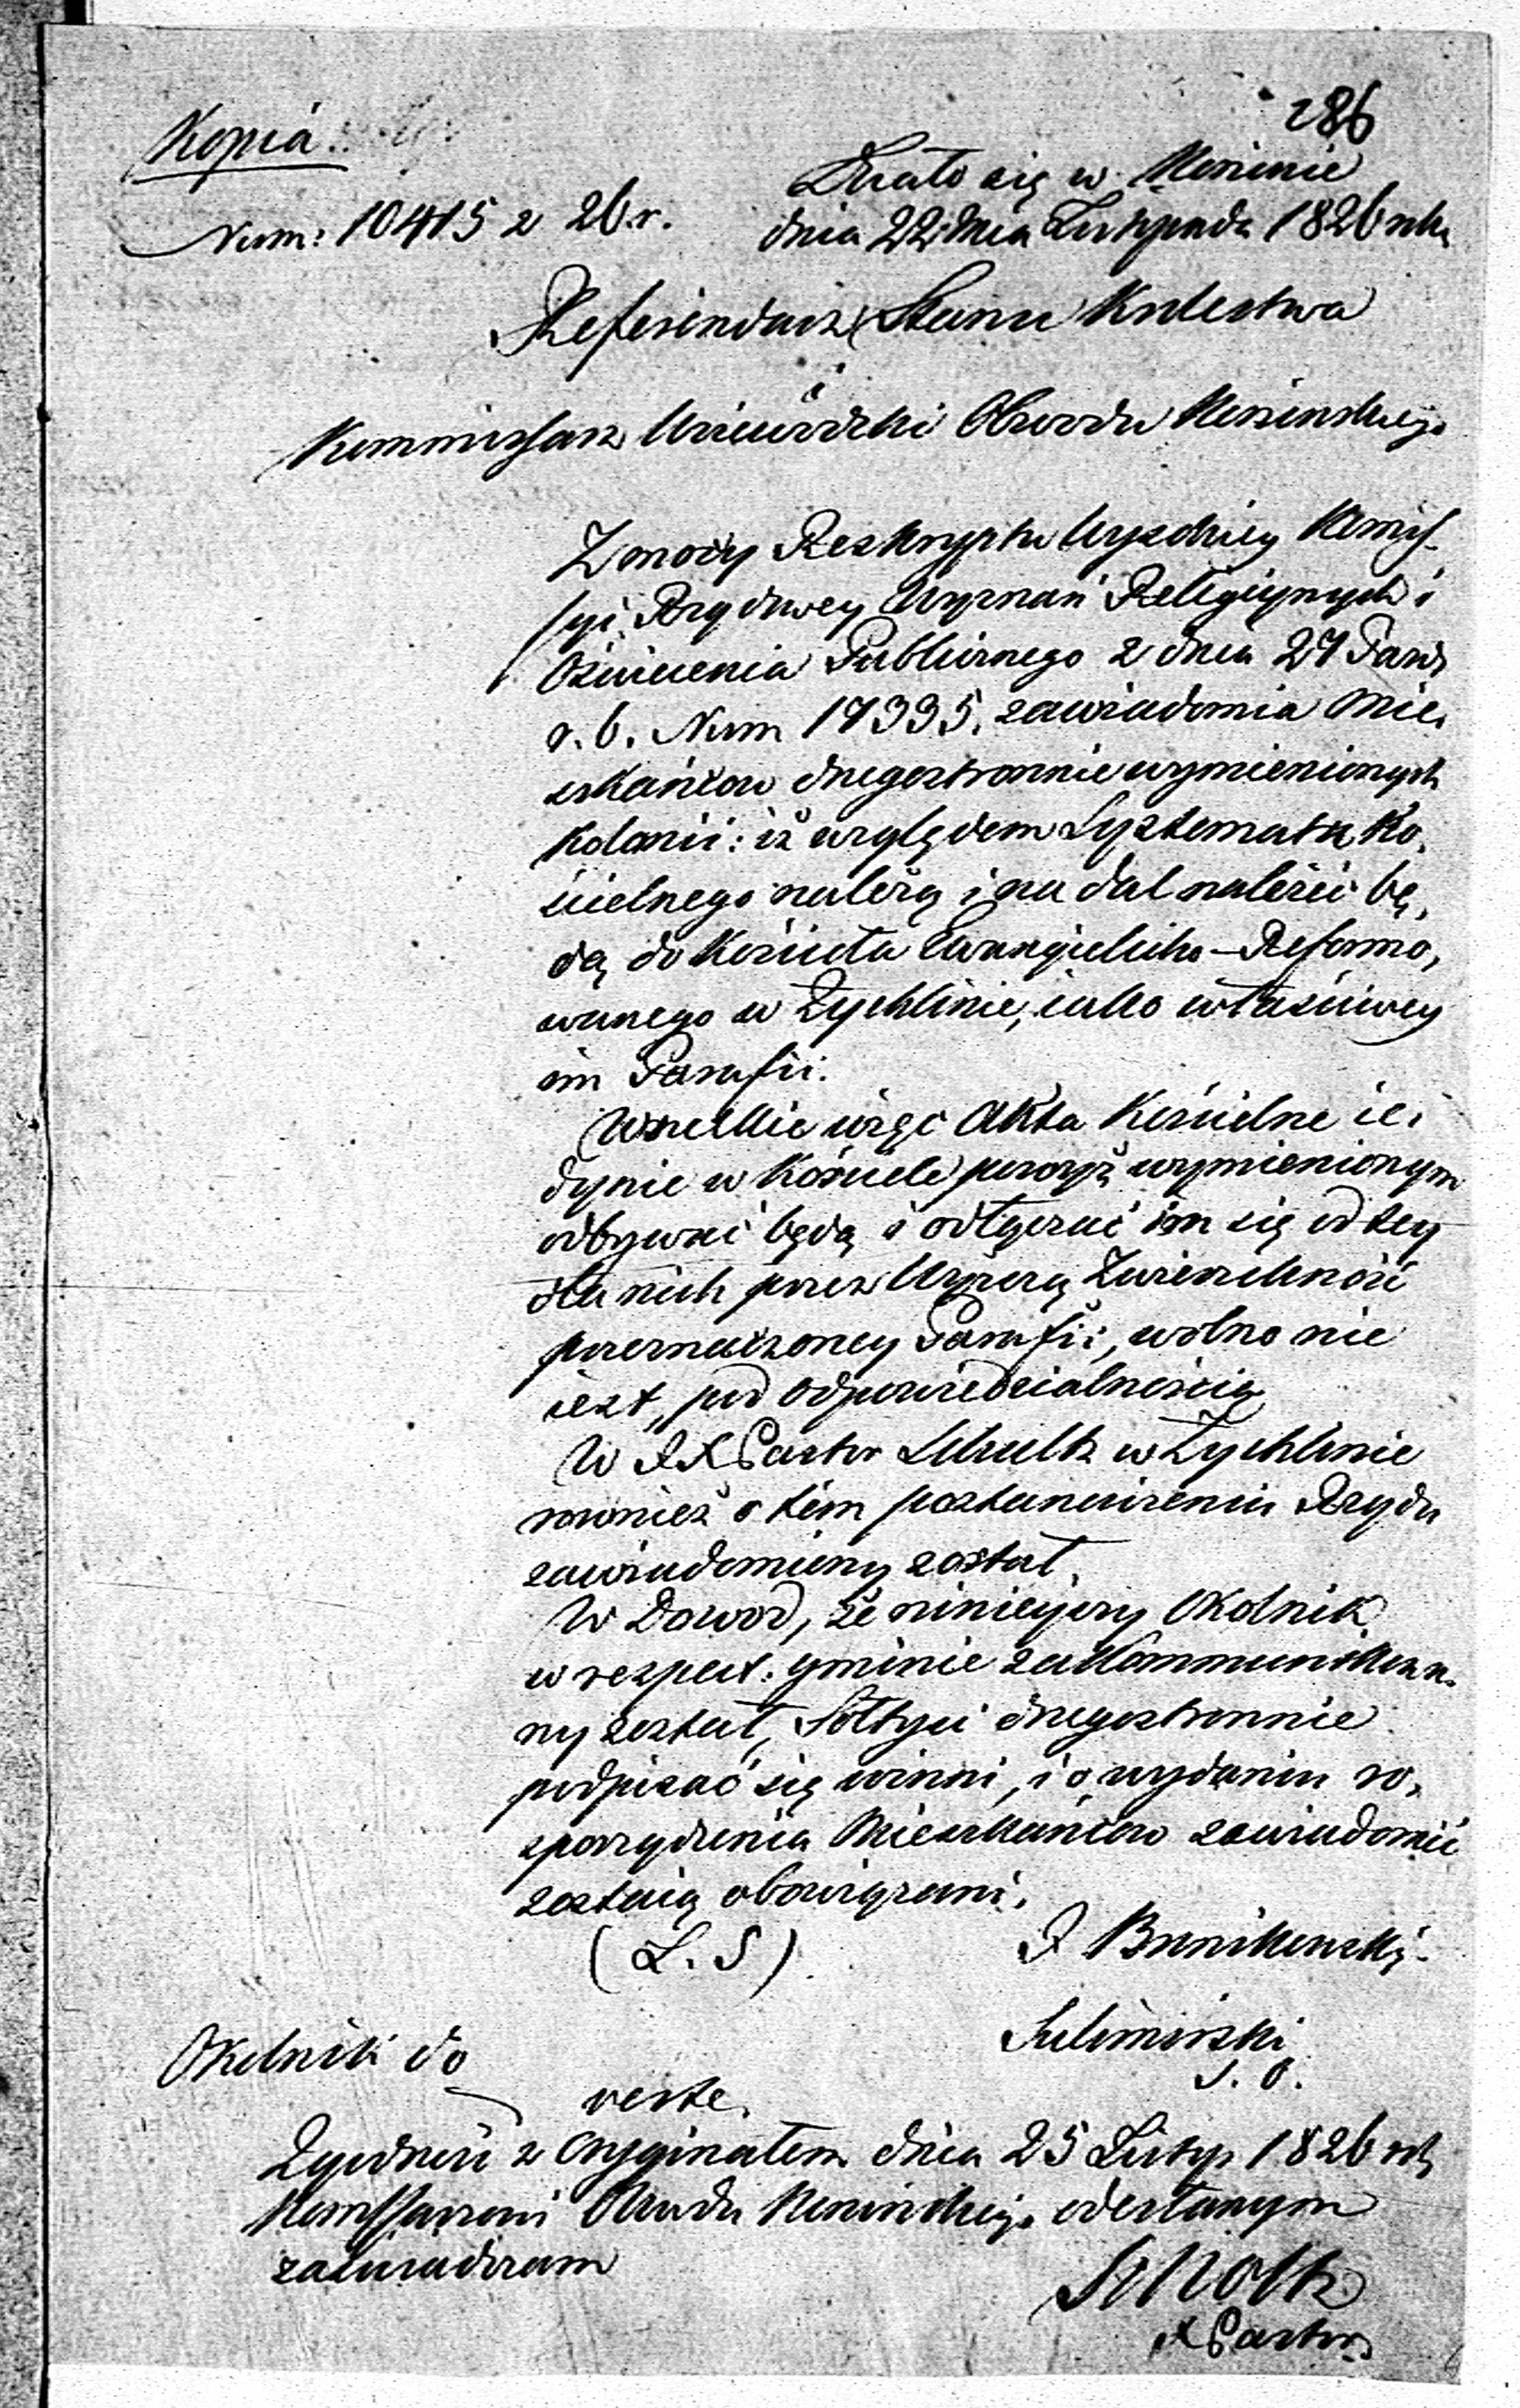 286
Kopia.
Działo się w Koninie
Num: 10415 z 26 r. dnia 22 dnia Listopada 1826 roku
Referendarz Stanu Krolestwa
i
Kommissarz Woiewódzki Obwodu Konińskiego
Z mocy Reskryptu Wyzdniey Komis-
syi Rządowey Wyznań Religiynych i
Oświecenia Publicznego z dnia 27 Pazd
r. b. Num 17395. zawiadomia Mie,
szkańcow drugostronnie wymienionych
Kolonii: iż względem Systematu Ko,
ścielnego należą i na dal należeć bę,
dą do Kościoła Ewangielicko-Reformo,
wanego w Żychlinie, iako właściwey
im Parafii.
Wszelkie więc Akta Kościelne ie,
dynie w Kościele powyż wymienionym
odbywać będą i odłączać im się od tey
dla nich przez Wyższą Zwierzchność
przeznaczoney Parafii, wolno nie
iest, pod odpowiedzialnością
W J X Pastor Scholtz w Żychlinie
rownież o tém postanowieniu Rządu
zawiadomiony został.
W Dowod, że ninieyszy Okolnik
w respect: gminie zakommunikowa-
ny został, Sołtysi drugostronnie
podpisać się winni, i o wydaniu ro,
zporządzenia Mieszkańcow zawiadomić
zostaią obowiązani.
(L. S) J Bronikowski
Sulimirski
S. O.
Okolnik do
verte
Zgodność z Oryginałem dnia 25 Listop 1826 rok
Komissarzowi Obwodu Konińskiego odesłanym
zaświadczam
Scholtz
X Pastor